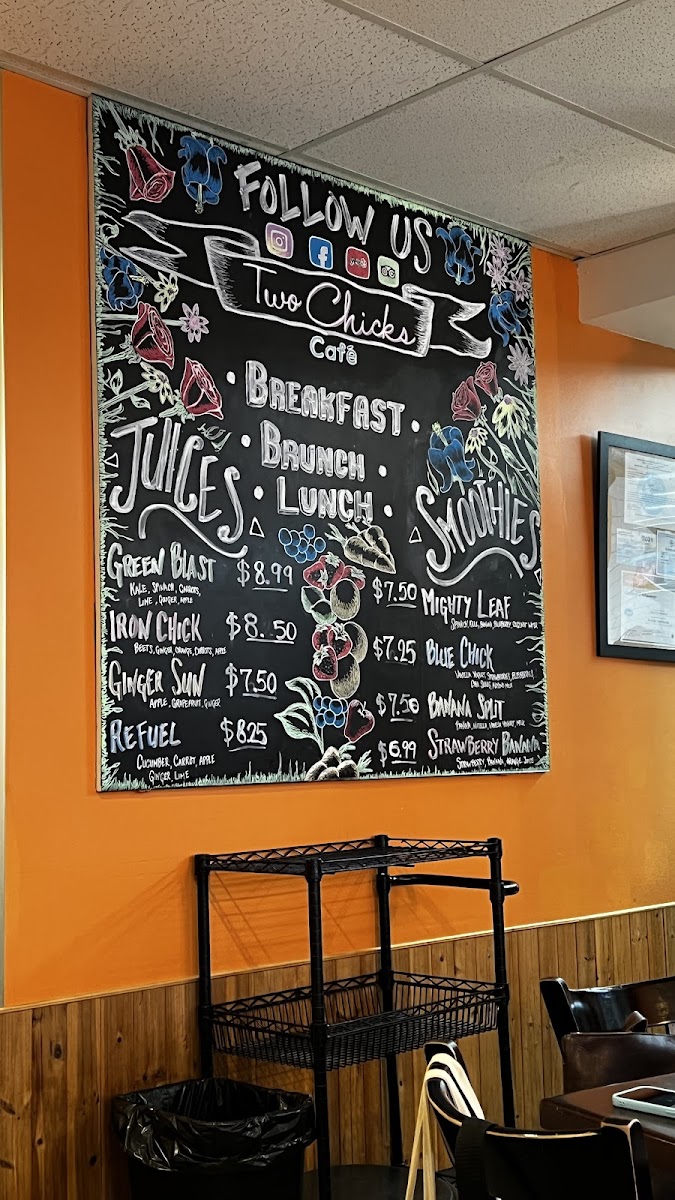 FOLLOW US
Two Chicks
Café
• BREAKFAST •
• BRUNCH •
• LUNCH •
JUICES
GREEN BLAST $8.99
KALE, SPINACH, CARROTS,
LIME, GINGER, APPLE
IRON CHICK $8.50
BEETS, GINGER, ORANGE, CARROTS, APPLE
GINGER SUN $7.50
APPLE, GRAPEFRUIT, GINGER
REFUEL $8.25
CUCUMBER, CARROT, APPLE
GINGER, LIME
SMOOTHIES
$7.50 MIGHTY LEAF
SPINACH, KALE, BANANA, BLUEBERRY, COCONUT WATER
$7.25 BLUE CHICK
VANILLA YOGURT, STRAWBERRIES, BLUEBERRIES,
CHIA SEEDS, ALMOND MILK
$7.50 BANANA SPLIT
BANANA, NUTELLA, VANILLA YOGURT, MILK
$6.99 STRAWBERRY BANANA
STRAWBERRY, BANANA, ORANGE JUICE